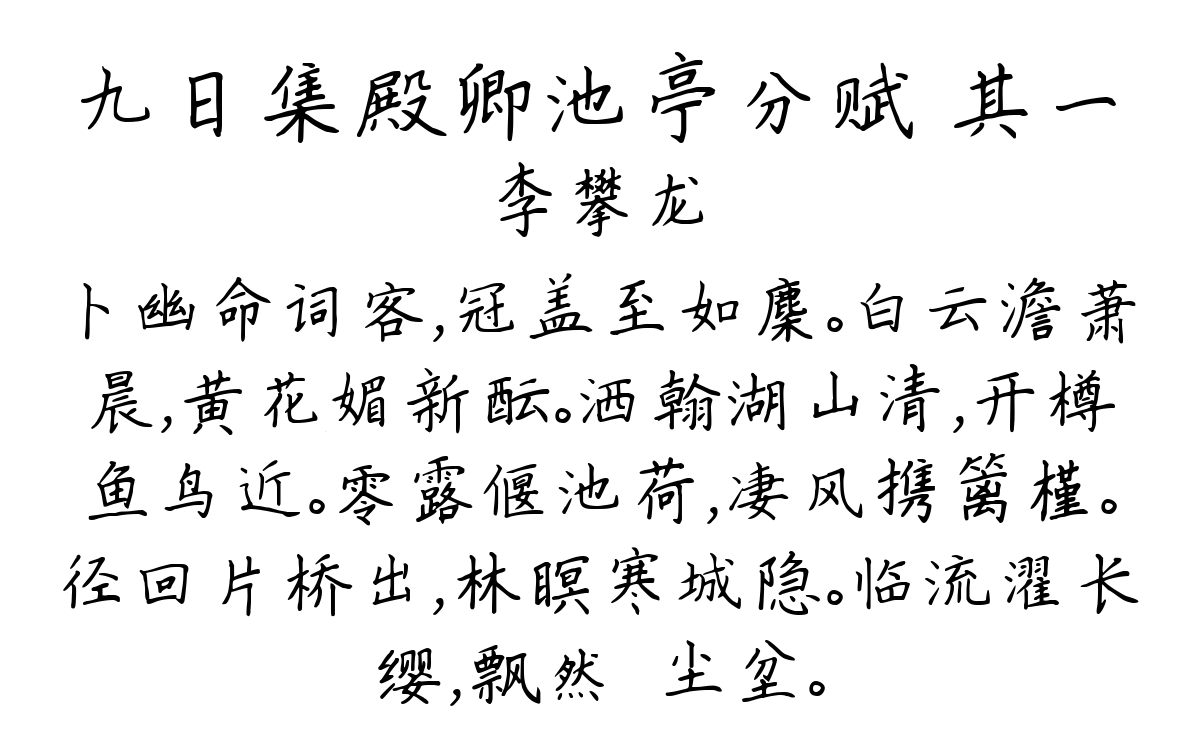 九日集殿卿池亭分赋 其一
李攀龙
卜幽命词客,冠盖至如麇。白云澹萧
晨,黄花媚新酝。洒翰湖山清,开樽
鱼鸟近。零露偃池荷,凄风携篱槿。
径回片桥出,林瞑寒城隐。临流濯长
缨,飘然 尘坌。